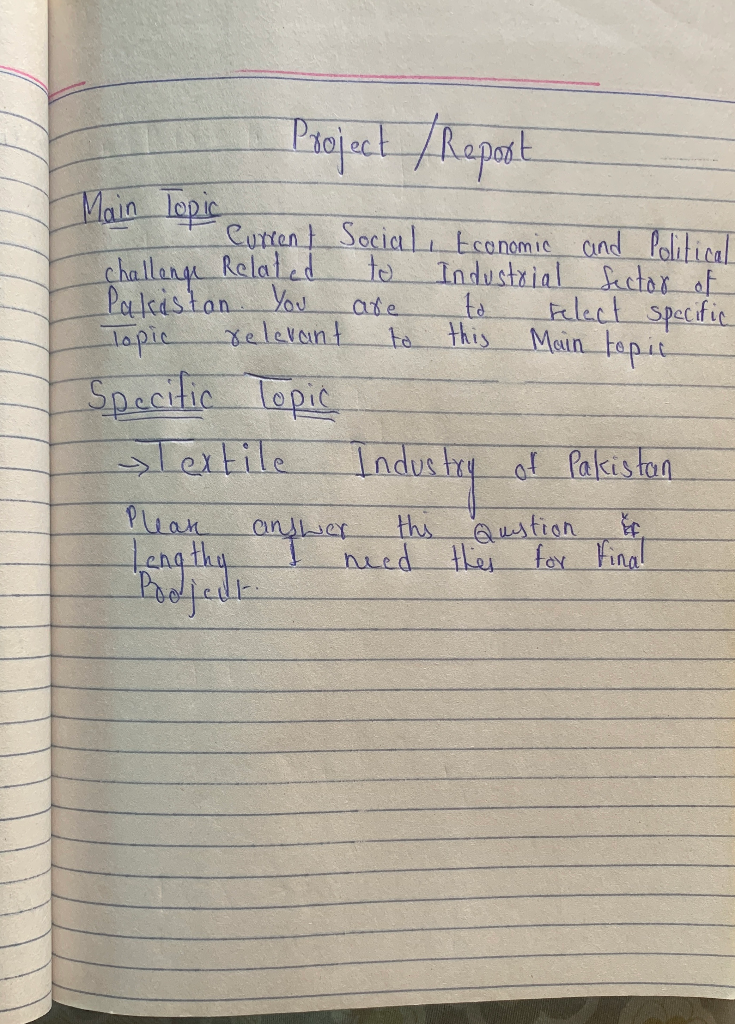 Project / Report
Main Topic
Current Social, Economic and Political
challenge Related to Industrial Sector of
Pakistan. You are to select specific
Topic relevant to this Main topic
Specific Topic
→ Textile Industry of Pakistan
Pleas answer this Qustion &
Lengthy I need thies for Final
Poojeut.